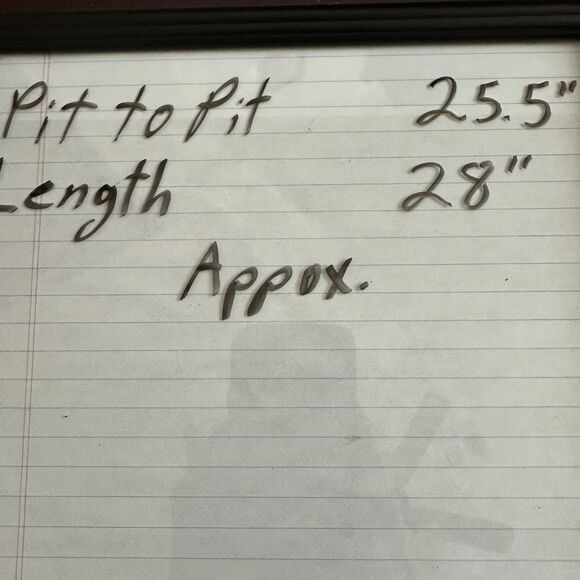 Pit to Pit 25.5"
Length 28"
Appox.